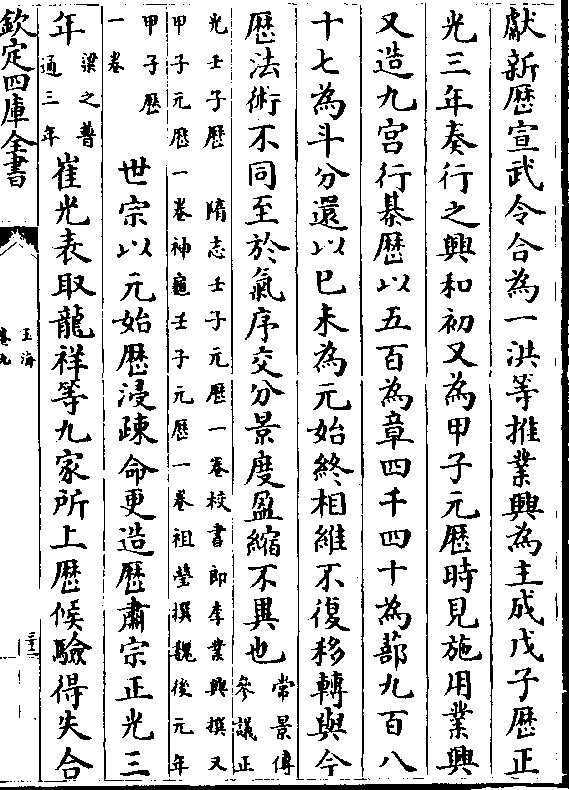 獻新歴宣武令合為一洪等推業興為主成戊子歴正
光三年奏行之興和初又為甲子元歴時見施用業興
又造九宫行棊歴以五百為章四千四十為蔀九百八
十七為斗分還以巳未為元始終相維不復移轉與今
歴法術不同至於氣序交分景度盈縮不異也常景傳
參議正
光壬子歴隋志壬子元歴一卷校書郎李業興撰又
甲子元歴一卷神龜壬子元歴一卷祖瑩撰魏後元年
甲子歴
一卷
世宗以元始歴浸疎命更造歴肅宗正光三
年梁之普
通三年
崔光表取龍祥等九家所上歴候驗得失合
欽定四庫全書
玉海
卷九
三十三